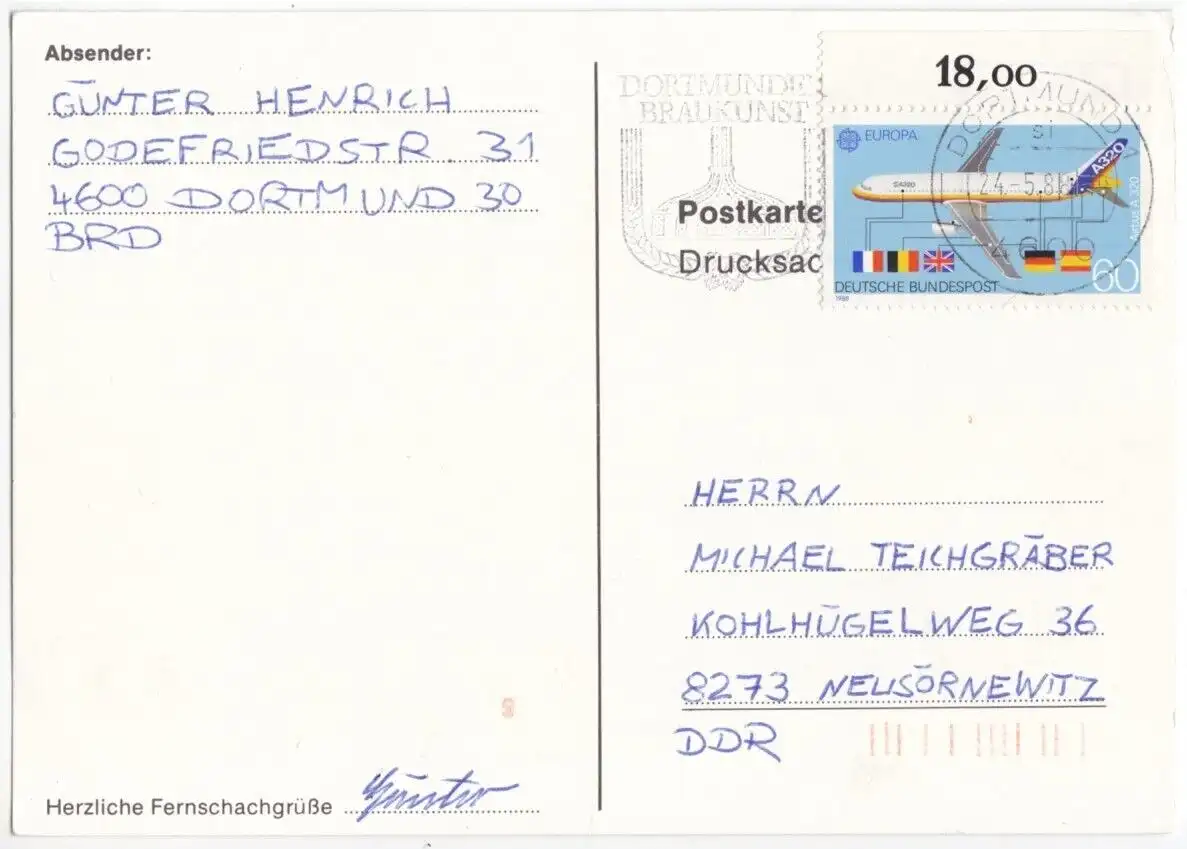 Absender:
GÜNTER HENRICH
GODEFRIEDSTR. 31
4600 DORTMUND 30
BRD
Herzliche Fernschachgrüße Günter
DORTMUNDE
BRAUKUNST
18,00
DORTMUND
si
24.-5.88
4600
EUROPA
A320
SA320
Airbus A 320
60
DEUTSCHE BUNDESPOST
1988
Postkarte
Drucksac
HERRN
MICHAEL TEICHGRÄBER
KOHLHÜGELWEG 36
8273 NEUSÖRNEWITZ
DDR